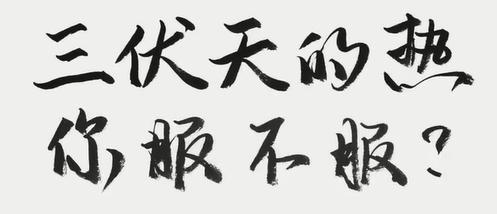 三伏天的热
你服不服?